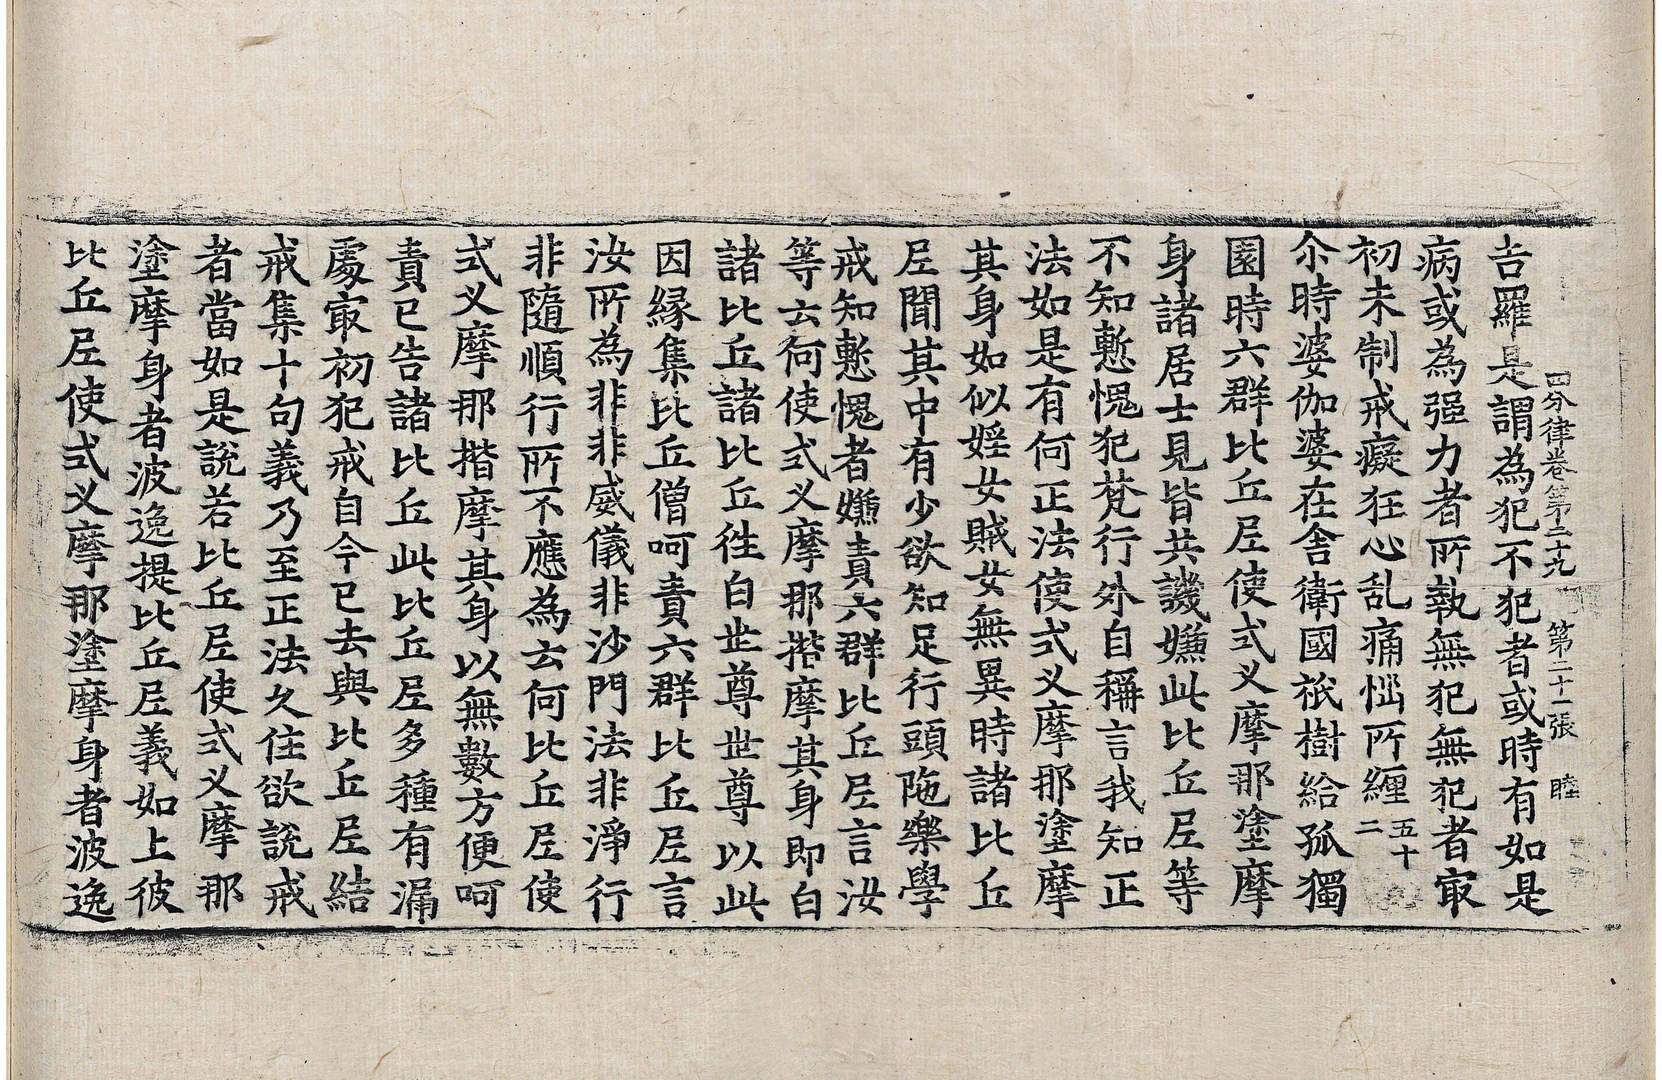 四分律卷第二十九 第二十一張 睦
吉羅是謂為犯不犯者或時有如是
病或為强力者所執無犯無犯者㝡
初未制戒癡狂心乱痛惱所纏 五十二
尒時婆伽婆在舎衛國祇樹給孤獨
園時六群比丘尼使式叉摩那塗摩
身諸居士見皆共譏嫌此比丘尼等
不知慙愧犯梵行外自稱言我知正
法如是有何正法使式叉摩那塗摩
其身如似婬女女賊女無異時諸比丘
尼聞其中有少欲知足行頭陁樂學
戒知慙愧者嫌責六群比丘尼言汝
等云何使式叉摩那揩摩其身即白
諸比丘諸比丘徃白世尊世尊以此
因緣集比丘僧呵責六群比丘尼言
汝所為非非威儀非沙門法非淨行
非隨順行所不應為云何比丘尼使
式叉摩那揩摩其身以無數方便呵
責已告諸比丘此比丘尼多種有漏
處㝡初犯戒自今已去與比丘尼結
戒集十句義乃至正法久住欲說戒
者當如是說若比丘尼使式叉摩那
塗摩身者波逸提比丘尼義如上彼
比丘尼使式叉摩那塗摩身者波逸